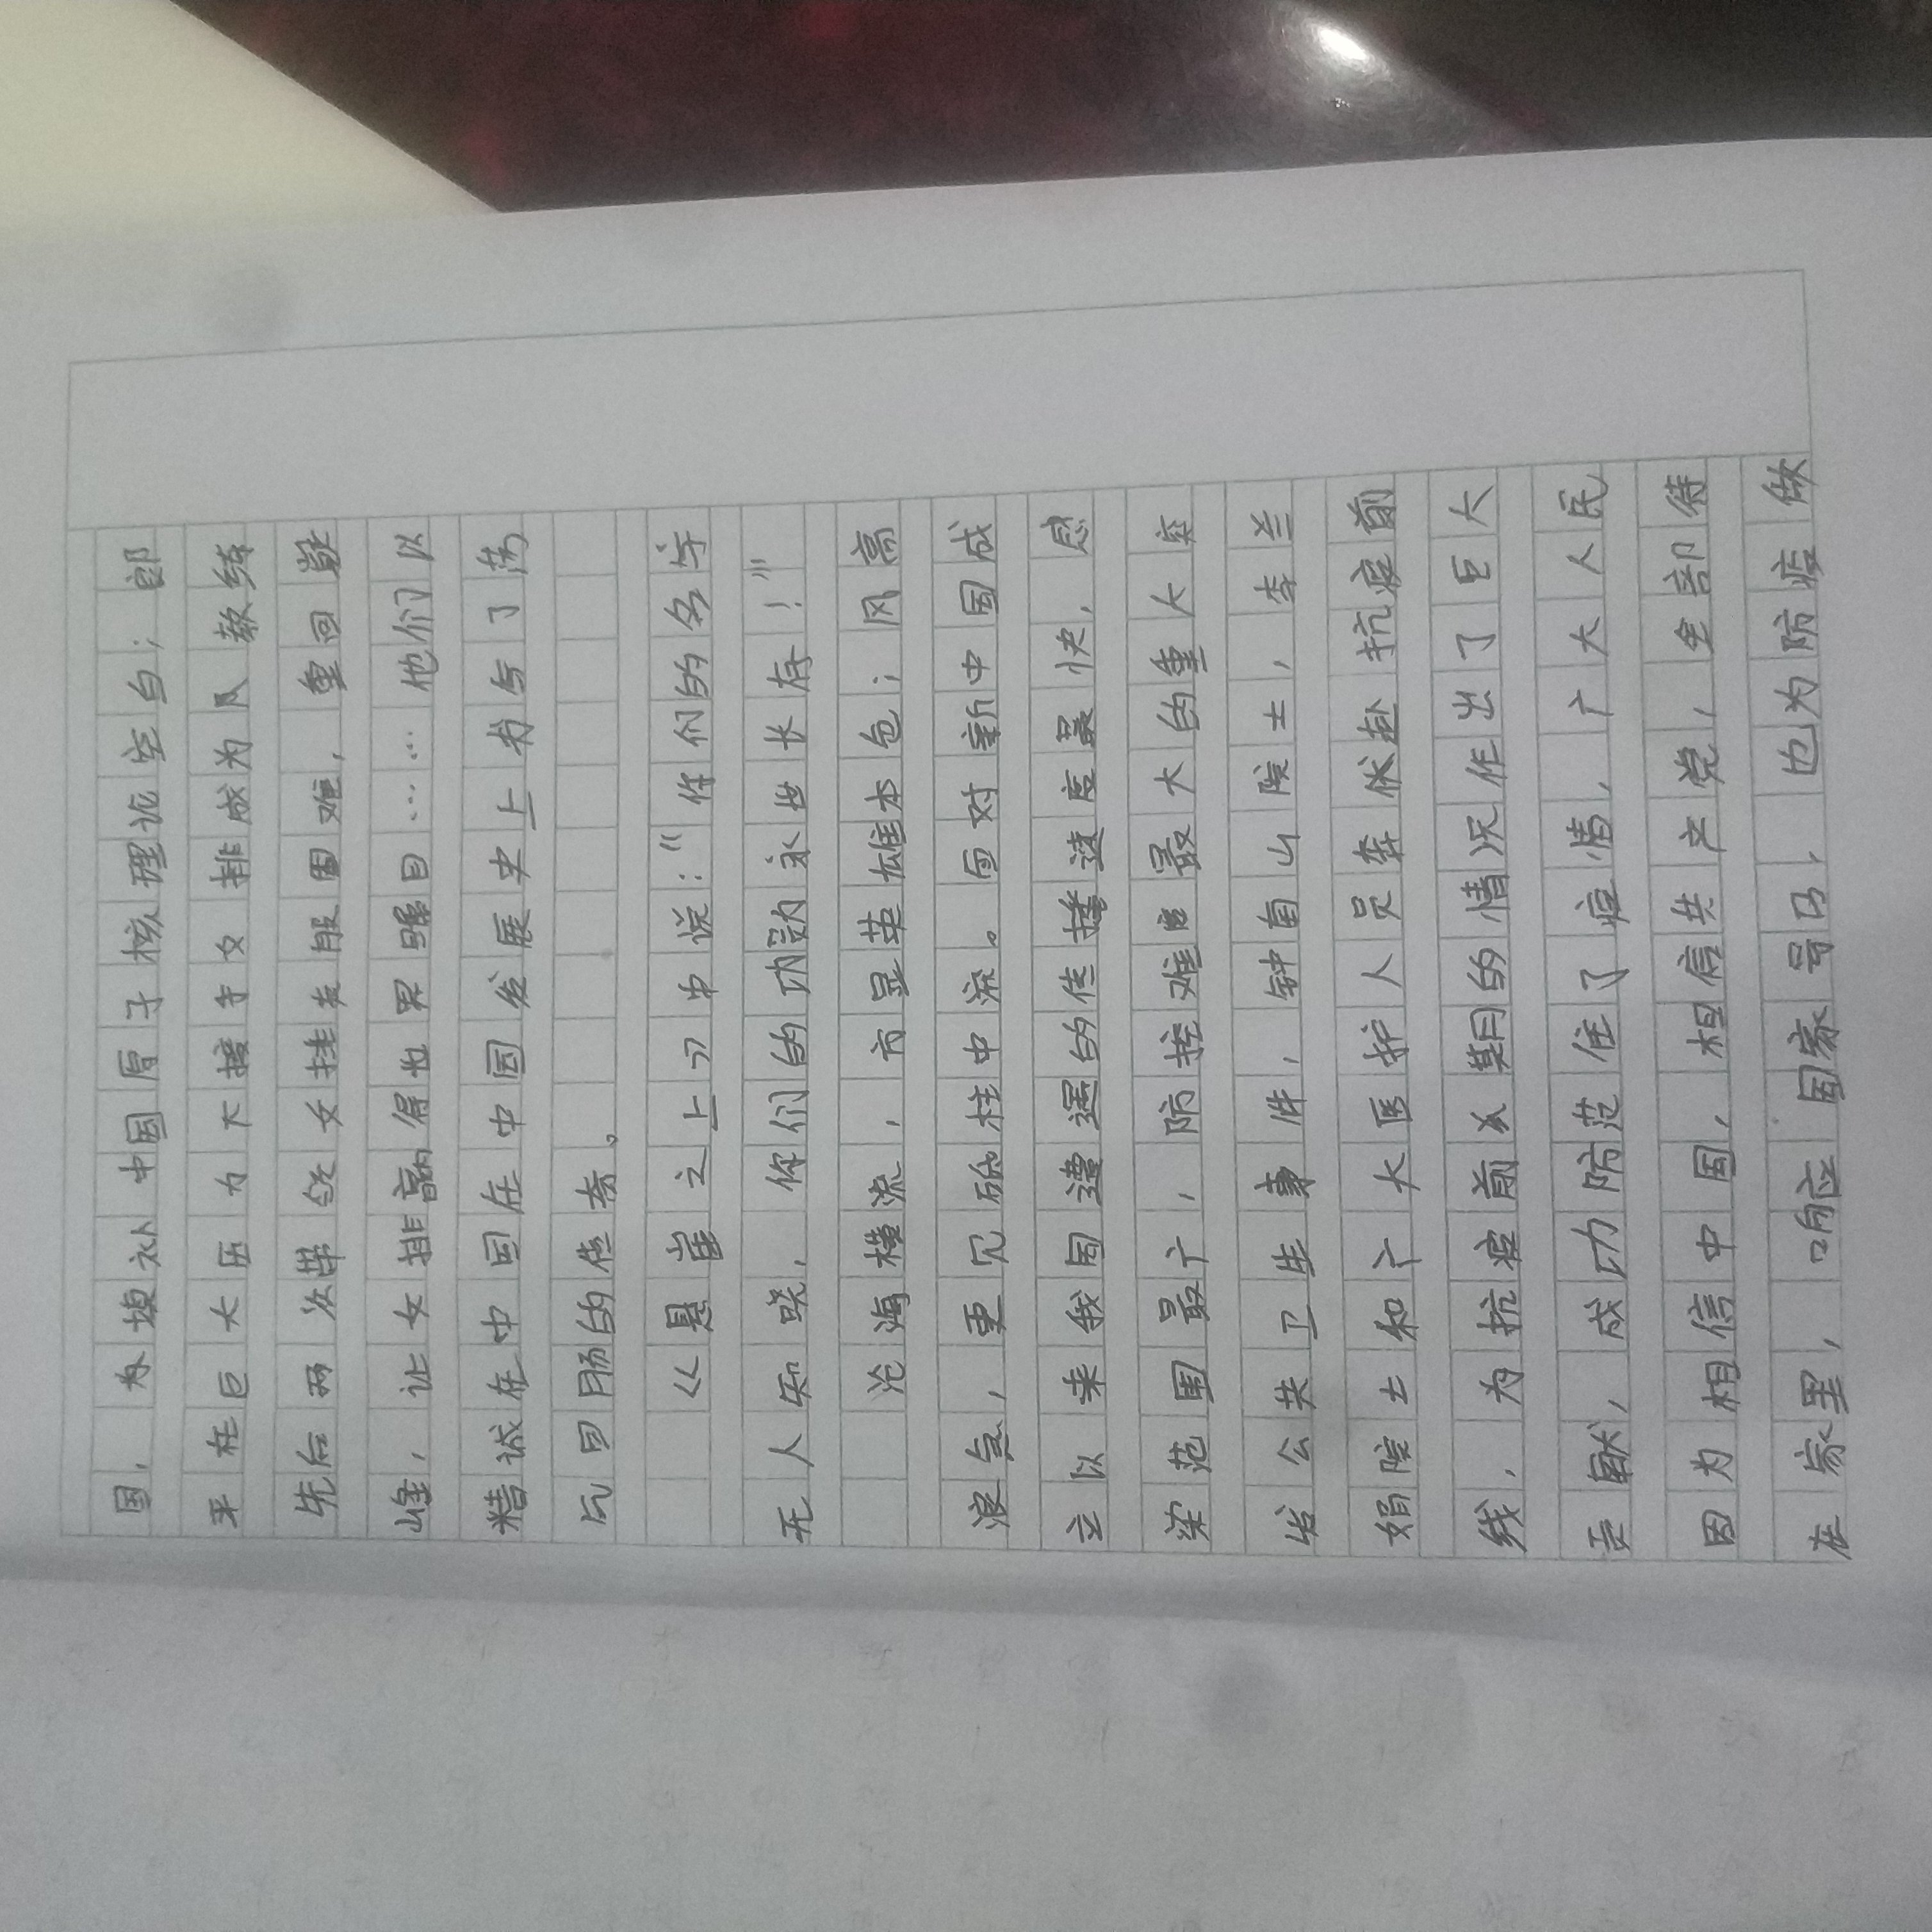 国，为填补中国原子核理论空白；郎
平在巨大压力大接手女排成为队教练
先后两次带领女排克服困难，重回巅
峰，让女排赢得世界瞩目……他们以
精诚在中国在中国发展史上书写了荡
气回肠的传奇。
《悬崖之上》中说：“你们的名字
无人知晓，你们的功勋永世长存！”
沧海横流，方显英雄本色；风高
浪急，更见砥柱中流。面对新中国成
立以来我国遭遇的传播速度最快，感
染范围最广，防控难度最大的重大突
发公共卫生事件，钟南山院士，李兰
娟院士和广大医护人员奔伏赴抗疫前
线，为抗疫前期的情况作出了巨大
贡献，成功防范住了疫情，广大人民
因为相信中国，相信共产党，全部待
在家里，响应国家号召，也为防疫做